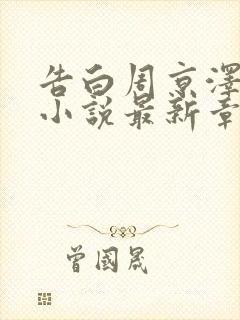 告白周京澤
小説最新章
曾國晟